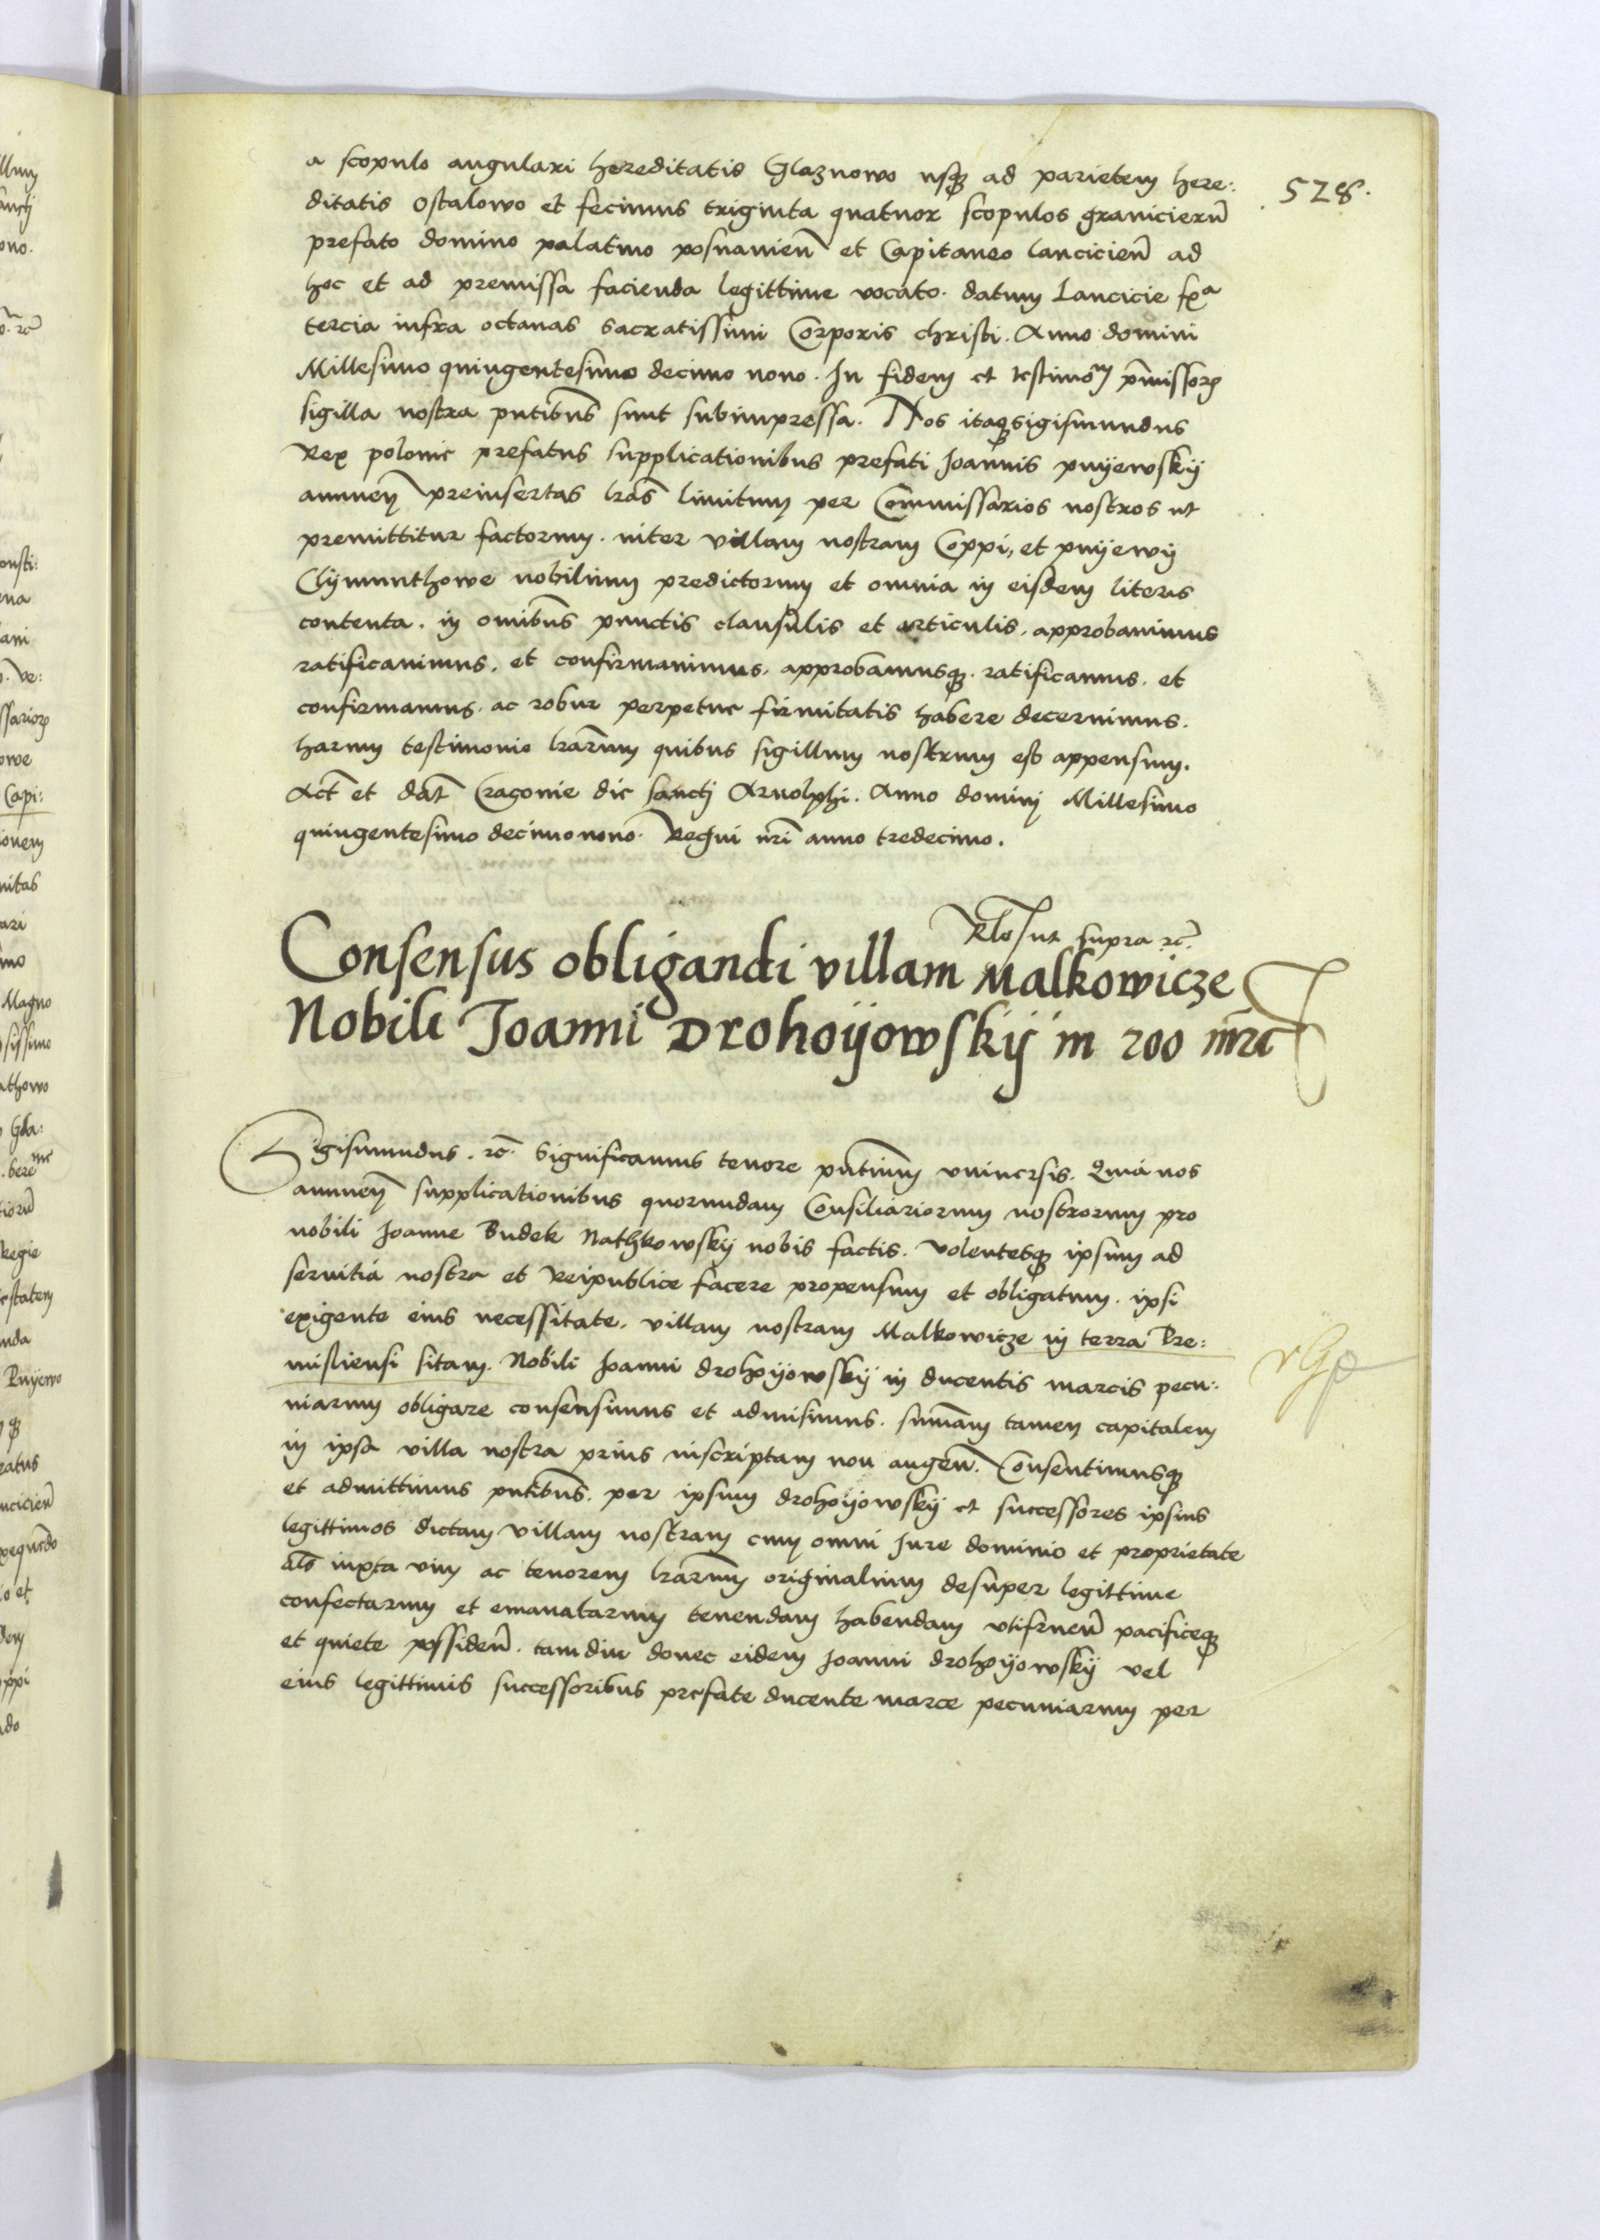 528.
a scopulo angulari hereditatis Glaznowo usq ad parietem here:
ditatis Ostalowo et fecimus triginta quatuor scopulos granicierũ
prefato domino palatino posnanieñ et Capitaneo lancicieñ ad
hoc et ad premissa facienda legittime vocato. datum Lancicie fxª
tercia infra octavas sacratissimi Corporis christi. Anno domini
Millesimo quingentesimo decimo nono. In fidem et testimoᵐ p̃missorꝝ
sigilla nostra pntibus̃ sunt subimpressa. Nos itaqꝫ sigismundus
Rex polonie prefatus supplicationibus prefati Joannis pnyewskij
annueñ preinsertas lr̃as limitum per Commissarios nostros ut
premittitur factorum. inter villam nostram Coppi, et pnyewij
Clijmunthowe nobilium predictorum et omnia in eisdem literis
contenta. in omibus̃ punctis clausulis et articulis. approbavimus
ratificavimus. et confirmavimus. approbamusqꝫ. ratificamus. et
confirmamus. ac robur perpetue firmitatis habere decernimus.
harum testimonio lr̃arum quibus sigillum nostrum est appensum.
Act̃ et dat̃ Cracovie die sancti Arnolphi. Anno domini Millesimo
quingentesimo decimonono. Regni nr̃i anno tredecimo.
Rlo ut supra rc̃.
Consensus obligandi villam Malkowicze
Nobili Joanni Drohoijowskij in 200 mr̃c
Sigismundus. rc̃. significamus tenore pñtium universis. Quia nos
annueñ supplicationibus quorundam Consiliariorum nostrorum pro
nobili Joanne Budek Nathkowskij nobis factis. volentesqꝫ ipsum ad
servitia nostra et Reipublice facere propensum et obligatum. ipsi
exigente eius necessitate. villam nostram Malkowicze in terra Pre:
misliensi sitam. Nobili Joanni drohoijowskij in ducentis marcis pecu:
niarum obligare consensimus et admisimus. sum̃am tamen capitalem
in ipsa villa nostra prius inscriptam non augeñ. Consentimusqꝫ
et admittimus pntibus̃. per ipsum drohoijowskij et successores ipsius
legittimos dictam villam nostram cum omni Jure dominio et proprietate
als̃ iuxta vim ac tenorem lr̃arum originalium desuper legittime
confectarum et emanatarum tenendam habendam utifrueñ pacificeqꝫ
et quiete possideñ. tamdiu donec eidem Joanni drohoijowskij vel
eius legittimis successoribus prefate ducente marce pecuniarum per